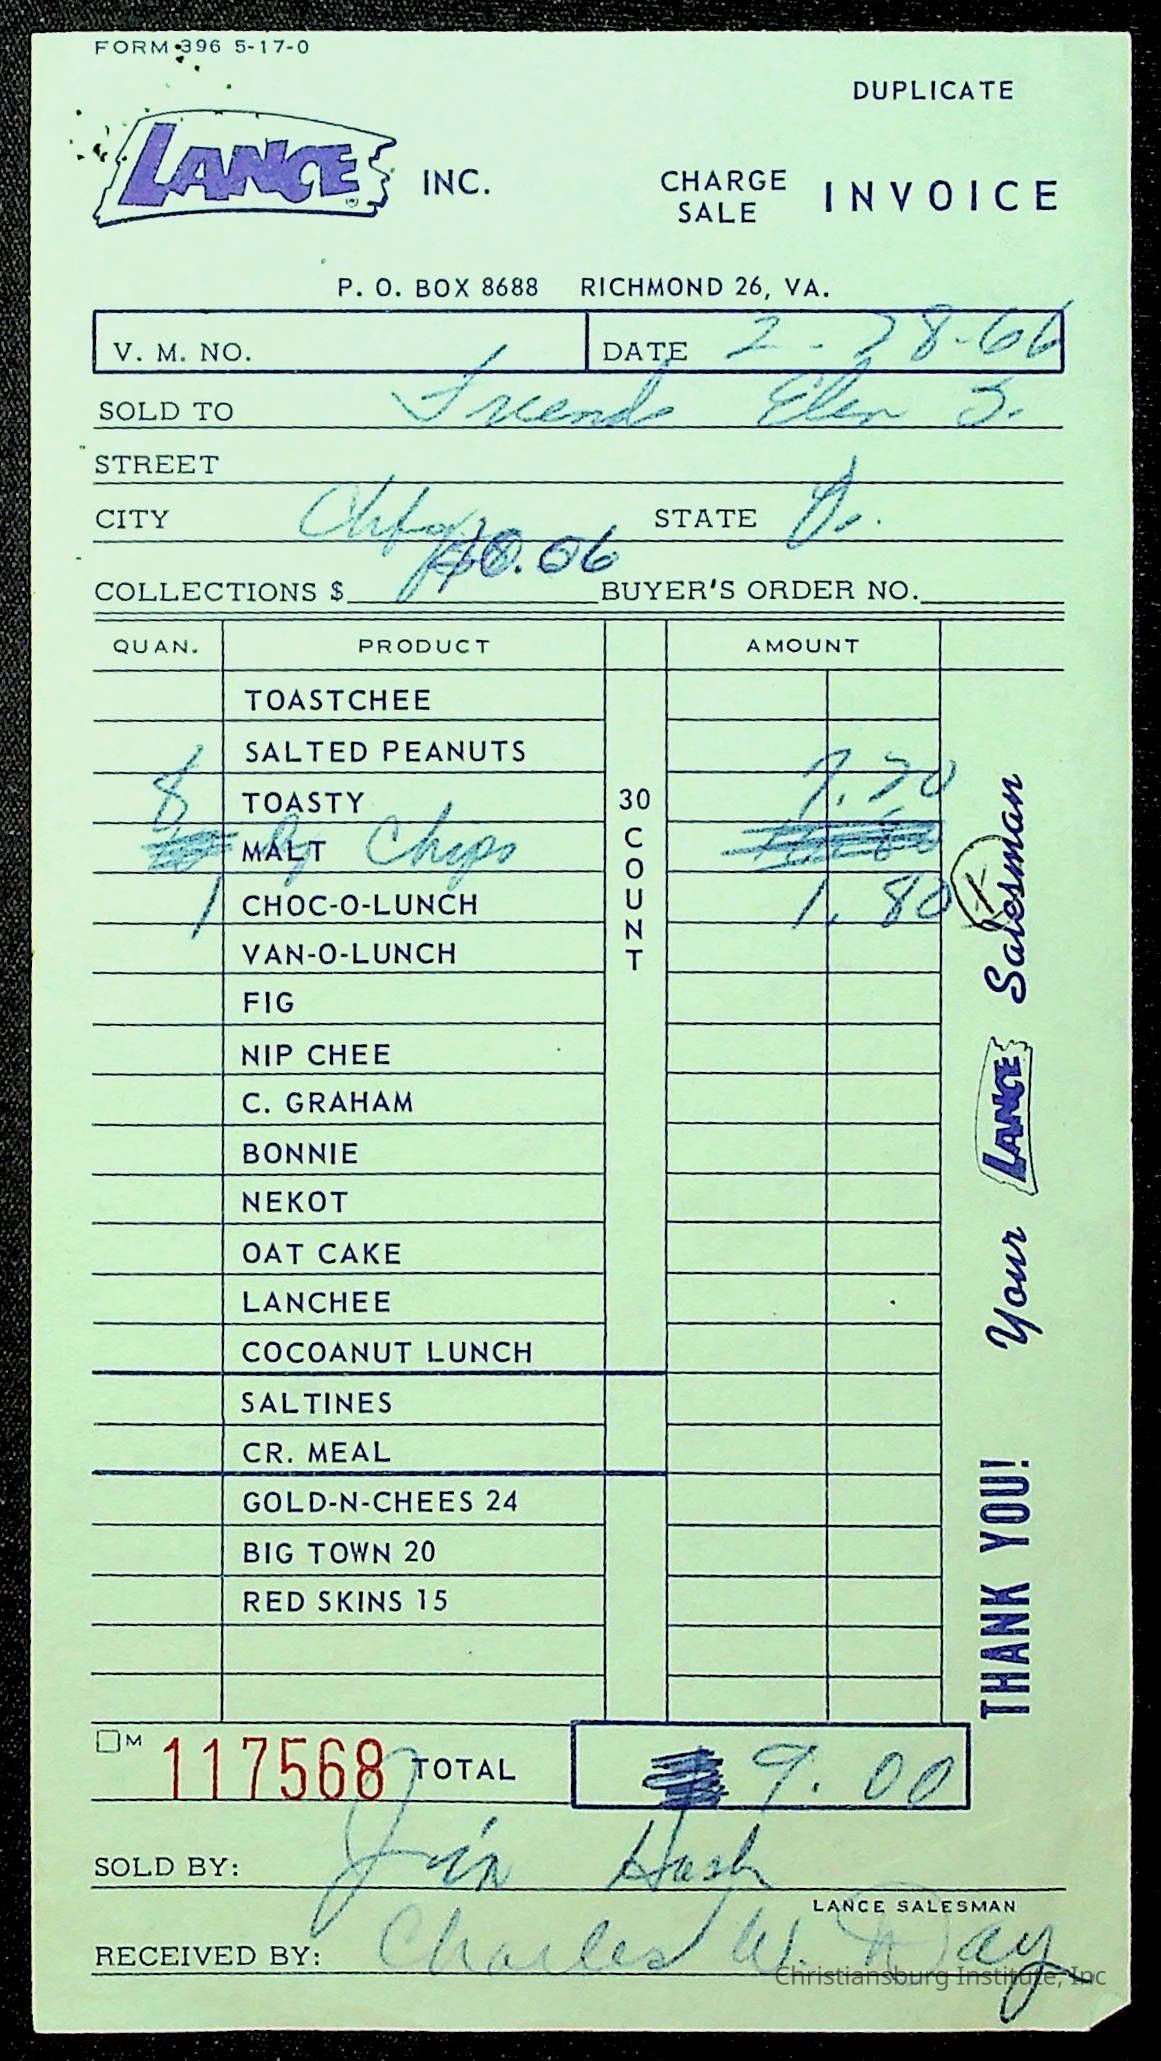 FORM 396 5-17-0
DUPLICATE
LANCE INC. CHARGE SALE INVOICE
P. O. BOX 8688 RICHMOND 26, VA.
V. M. NO. DATE 2-28-66
SOLD TO Friends Elem S.
STREET
CITY STATE Va.
COLLECTIONS $ BUYER'S ORDER NO.
QUAN. PRODUCT AMOUNT
TOASTCHEE
SALTED PEANUTS
8 TOASTY 7.20
MALT Chips
1 CHOC-O-LUNCH 1.80
VAN-O-LUNCH
FIG
NIP CHEE
C. GRAHAM
BONNIE
NEKOT
OAT CAKE
LANCHEE
COCOANUT LUNCH
30 COUNT
SALTINES
CR. MEAL
GOLD-N-CHEES 24
BIG TOWN 20
RED SKINS 15
Your LANCE Salesman
THANK YOU!
M 117568 TOTAL 9.00
SOLD BY: Jim Hash
LANCE SALESMAN
RECEIVED BY: Charles W. Day
Christiansburg Institute, Inc